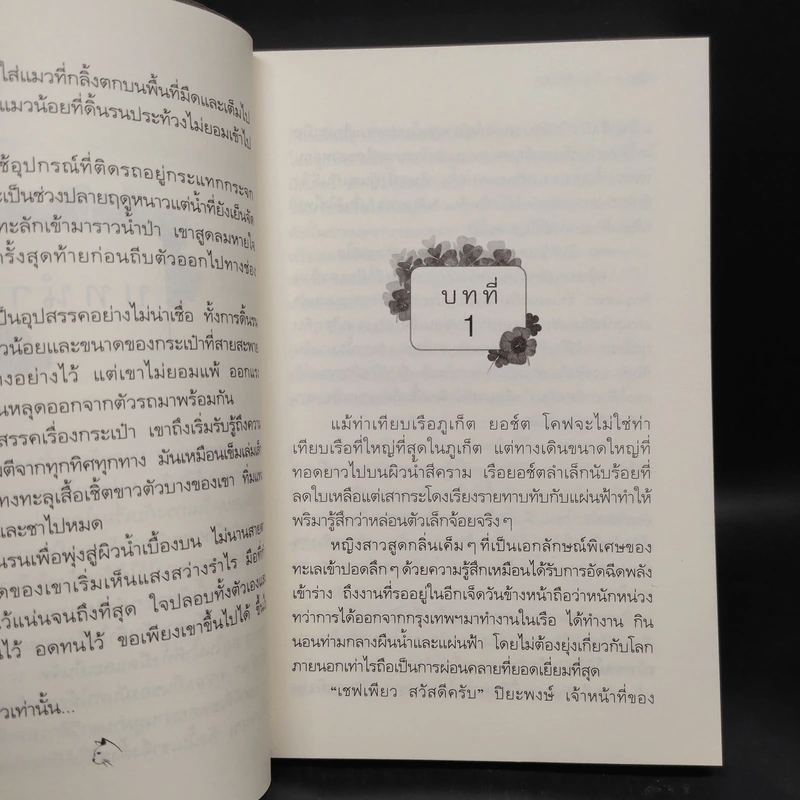 ใส่แมวที่กลิ้งตกบนพื้นที่มืดและเต็มไป
แมวน้อยที่ดิ้นรนประท้วงไม่ยอมเข้าไป
ช้อุปกรณ์ที่ติดรถอยู่กระแทกกระจก
ะเป็นช่วงปลายฤดูหนาวแต่น้ำที่ยังเย็นจัด
ทะลักเข้ามาราวน้ำป่า เขาสูดลมหายใจ
ครั้งสุดท้ายก่อนถีบตัวออกไปทางช่อง
ป็นอุปสรรคอย่างไม่น่าเชื่อ ทั้งการดิ้นรน
วน้อยและขนาดของกระเป๋าที่สายสะพาย
างอย่างไว้ แต่เขาไม่ยอมแพ้ ออกแรง
นหลุดออกจากตัวรถมาพร้อมกัน
สรรคเรื่องกระเป๋า เขาถึงเริ่มรับรู้ถึงความ
มตีจากทุกทิศทุกทาง มันเหมือนเข็มเล่มเล็ก
แทงทะลุเสื้อเชิ้ตขาวตัวบางของเขา ทิ่มแทง
และชาไปหมด
นรนเพื่อพุ่งสู่ผิวน้ำเบื้องบน ไม่นานสายตา
ดของเขาเริ่มเห็นแสงสว่างรำไร มือที่
ไว้แน่นจนถึงที่สุด ใจปลอบทั้งตัวเองและ
นไว้ อดทนไว้ ขอเพียงเขาขึ้นไปได้ ขึ้น
วเท่านั้น...
บทที่
1
แม้ท่าเทียบเรือภูเก็ต ยอช์ต โคฟจะไม่ใช่ท่า
เทียบเรือที่ใหญ่ที่สุดในภูเก็ต แต่ทางเดินขนาดใหญ่ที่
ทอดยาวไปบนผิวน้ำสีคราม เรือยอช์ตลำเล็กนับร้อยที่
ลดใบเหลือแต่เสากระโดงเรียงรายทาบทับกับแผ่นฟ้าทำให้
พริมารู้สึกว่าหล่อนตัวเล็กจ้อยจริงๆ
หญิงสาวสูดกลิ่นเค็มๆ ที่เป็นเอกลักษณ์พิเศษของ
ทะเลเข้าปอดลึกๆ ด้วยความรู้สึกเหมือนได้รับการอัดฉีดพลัง
เข้าร่าง ถึงงานที่รออยู่ในอีกเจ็ดวันข้างหน้าถือว่าหนักหน่วง
ทว่าการได้ออกจากกรุงเทพฯ มาทำงานในเรือ ได้ทำงาน กิน
นอนท่ามกลางผืนน้ำและแผ่นฟ้า โดยไม่ต้องยุ่งเกี่ยวกับโลก
ภายนอกเท่าไรถือเป็นการผ่อนคลายที่ยอดเยี่ยมที่สุด
“เชฟเพียว สวัสดีครับ” ปิยะพงษ์ เจ้าหน้าที่ของ